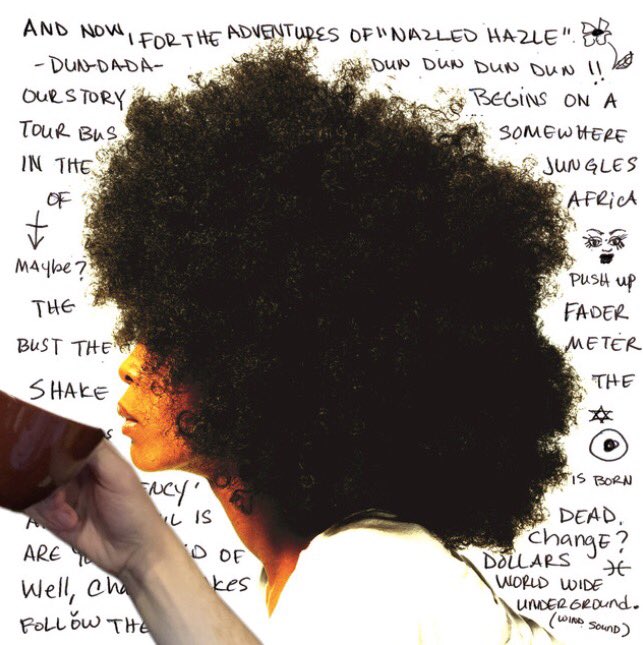 AND NOW, FOR THE ADVENTURES OF "NAZLED HAZLE".
-DUN-DADA- DUN DUN DUN DUN !!
OUR STORY BEGINS ON A
TOUR BUS SOMEWHERE
IN THE JUNGLES
OF AFRICA
MAYbe? PUSH UP
THE FADER
BUST THE METER
SHAKE THE
IS BORN
NCY'
IS DEAD.
ARE OF Change?
DOLLARS
Well, WORLD WIDE
UNDERGROUND.
FOLLOW THE (WIND SOUND)